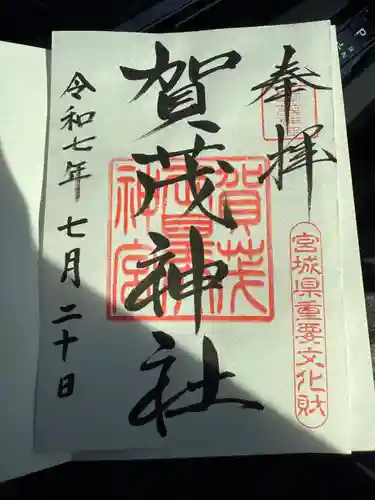 奉拝
宮城県重要文化財
賀茂神社
令和七年 七月二十日
P